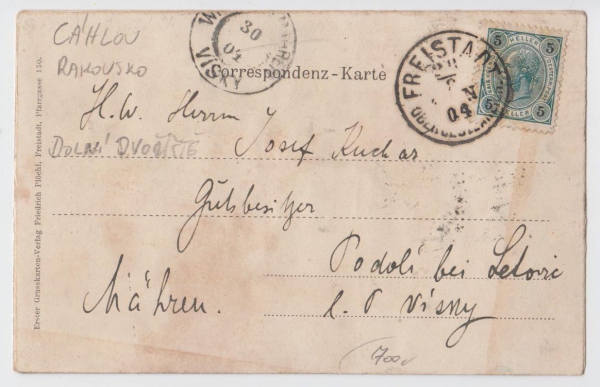 CÁHLOV
RAKOUSKO
DOLNÍ DVOŘIŠTĚ
30
04
FREISTADT
04
5 HELLER 5
5 HELLER 5
Correspondenz-Karte
H. W. Herrn
Josef Kuchar
Gutsbesitzer
Podolí bei Letovic
l. P Visny
Mähren.
Erster Grusskarten-Verlag Friedrich Plöchl, Freistadt, Pfarrgasse 150.